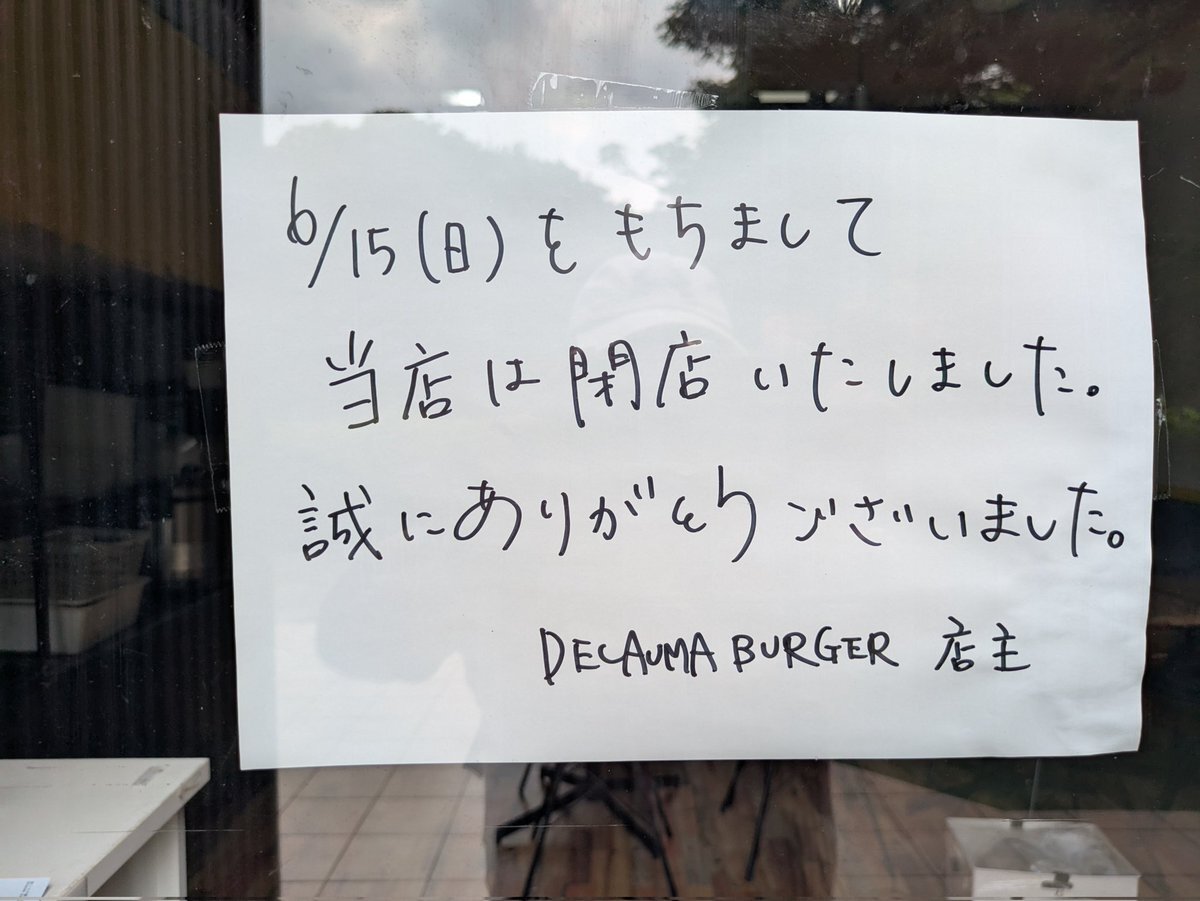 6/15(日)をもちまして
当店は閉店いたしました。
誠にありがとうございました。
DECAUMA BURGER 店主